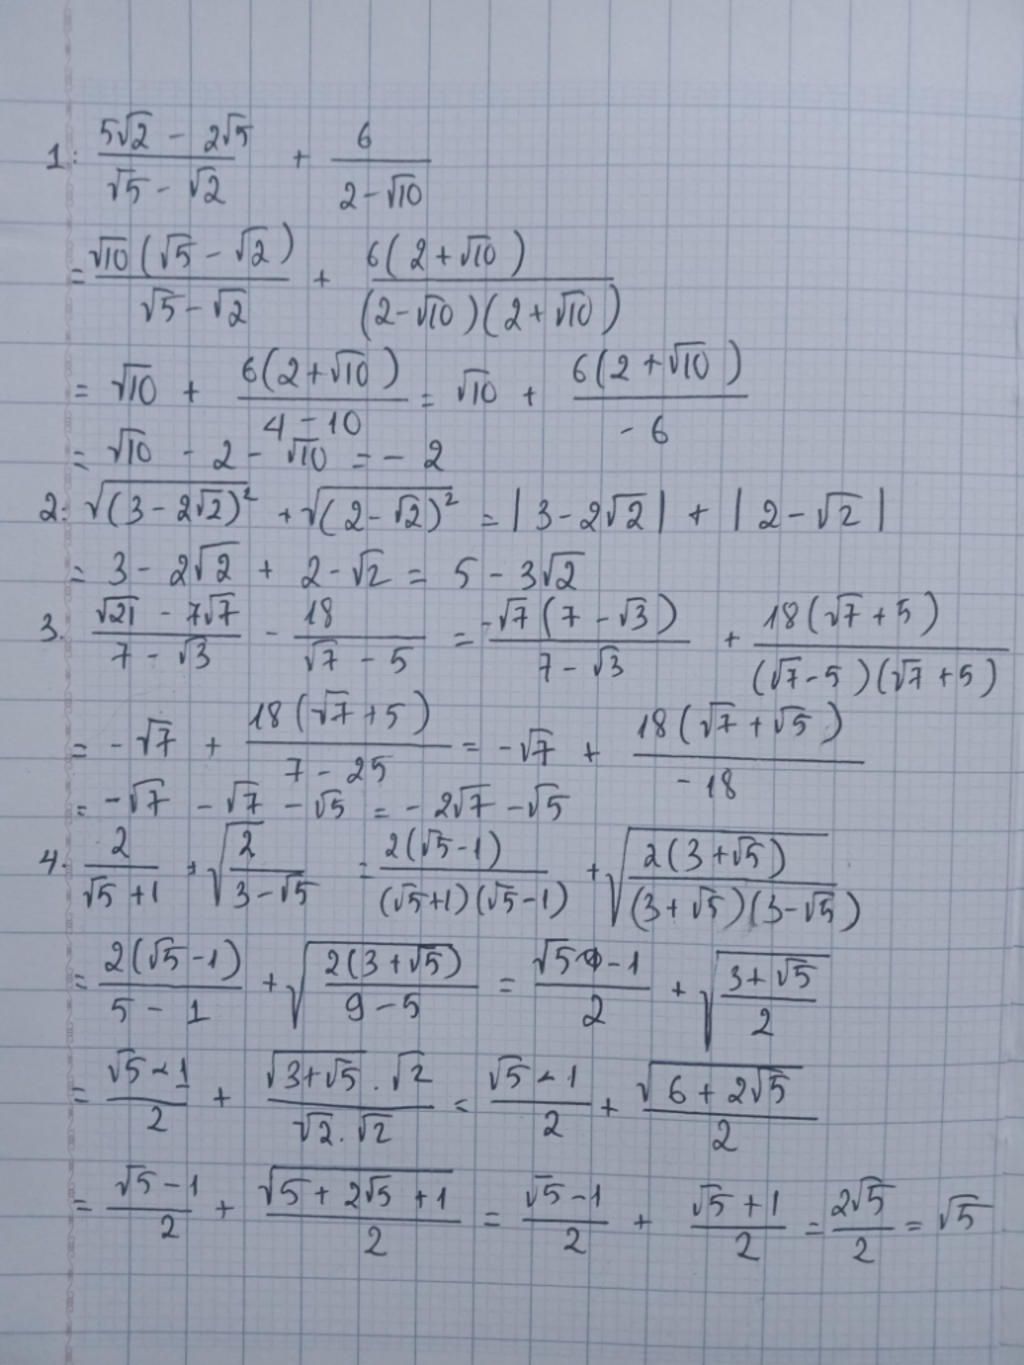 1: (5√2 - 2√5)/(√5 - √2) + 6/(2 - √10)
= √10(√5 - √2)/(√5 - √2) + 6(2 + √10)/((2 - √10)(2 + √10))
= √10 + 6(2 + √10)/(4 - 10) = √10 + 6(2 + √10)/(-6)
= √10 - 2 - √10 = - 2
2: √((3 - 2√2)²) + √((2 - √2)²) = |3 - 2√2| + |2 - √2|
= 3 - 2√2 + 2 - √2 = 5 - 3√2
3. (√21 - 7√7)/(7 - √3) - 18/(√7 - 5) = -√7(7 - √3)/(7 - √3) + 18(√7 + 5)/((√7 - 5)(√7 + 5))
= -√7 + 18(√7 + 5)/(7 - 25) = -√7 + 18(√7 + √5)/(-18)
= -√7 - √7 - √5 = - 2√7 - √5
4. 2/(√5 + 1) + √(2/(3 - √5)) = 2(√5 - 1)/((√5 + 1)(√5 - 1)) + √(2(3 + √5)/((3 + √5)(3 - √5)))
= 2(√5 - 1)/(5 - 1) + √(2(3 + √5)/(9 - 5)) = (√5 - 1)/2 + √((3 + √5)/2)
= (√5 - 1)/2 + (√(3 + √5) . √2)/(√2 . √2) = (√5 - 1)/2 + √(6 + 2√5)/2
= (√5 - 1)/2 + √(5 + 2√5 + 1)/2 = (√5 - 1)/2 + (√5 + 1)/2 = 2√5/2 = √5